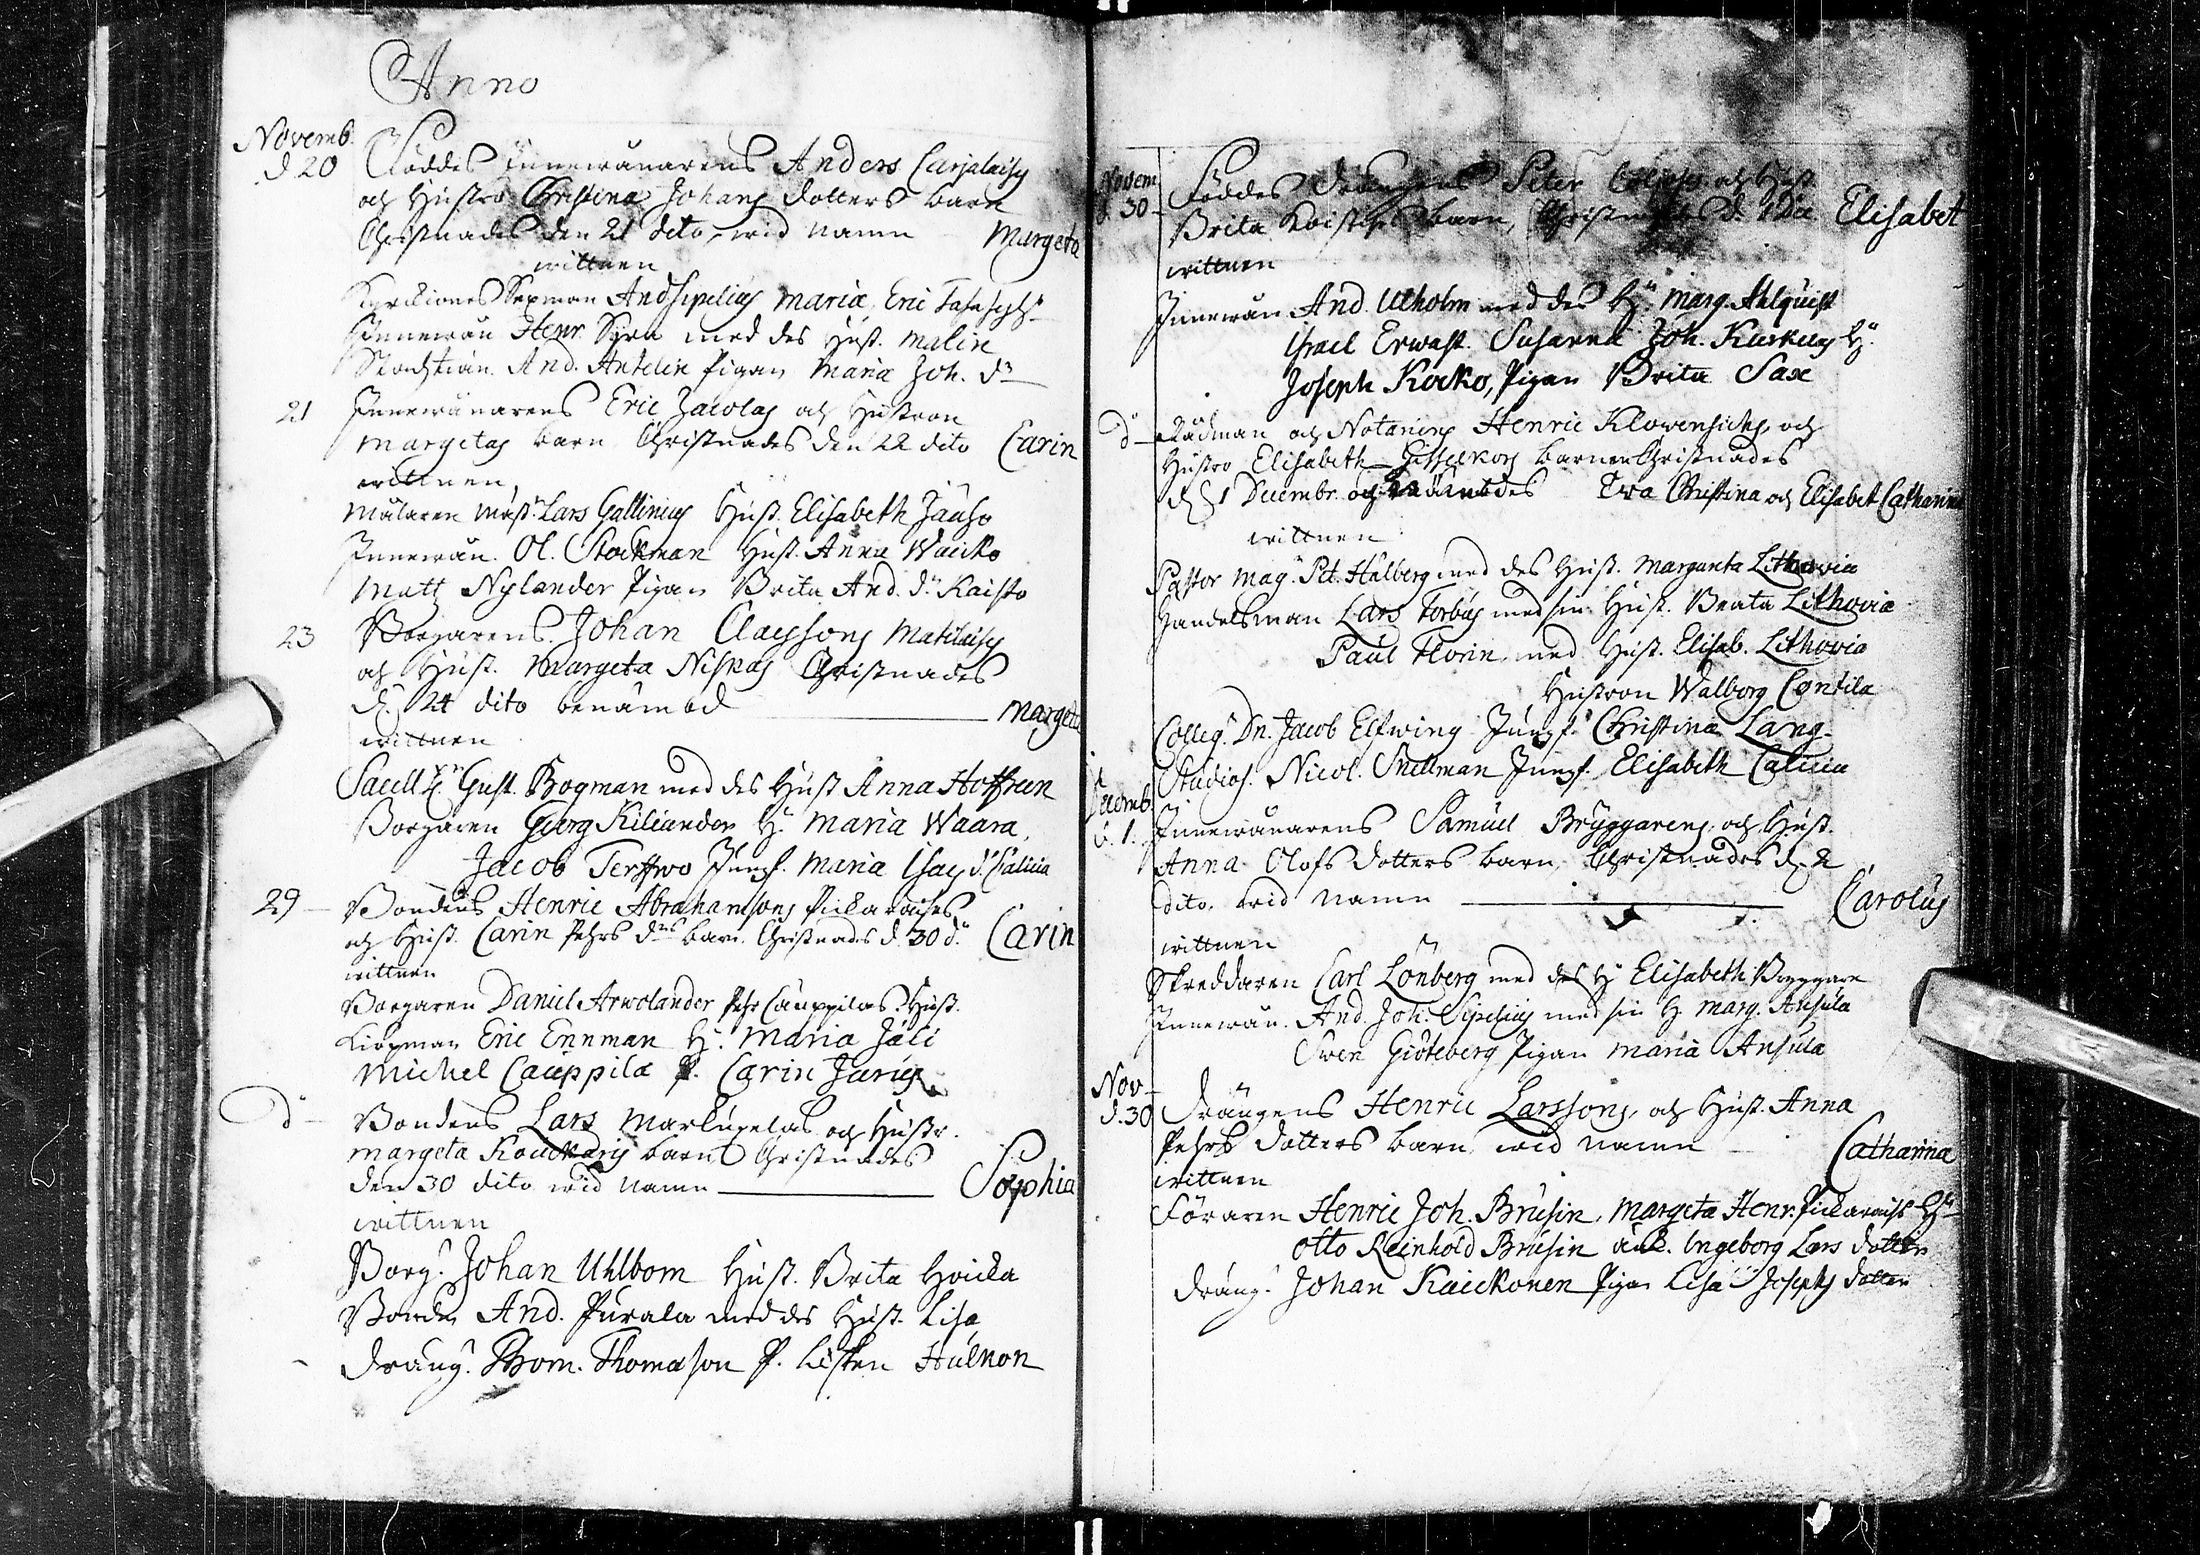 Anno
Novemb.
d 20 Föddes Innewånarens Anders Carjalaisḡ
och Hustro Christina Johans dotters barn
Christnades den 21 dito, wid namn Margeta
wittnen
Kyrckiones Sexman And Sipelius Maria, Eric
Innewån Henr. Syra med des Hust. Malin
And. Antelin Pigan Maria Joh. dr
21 Innewånarens Eric Jacolas och Hustron
Margetas barn Christnades den 22 dito Carin
wittnen
Målaren Mäst. Lars Gallinius Hust. Elisabeth Jauho
Innewån. Ol. Stockman Hust. Anna Waicko
Matt Nylander Pigan Brita And. dr Kaisto
23 Borgarens Johan Claessons Matilaisḡ
och Hust. Margeta Niskas Christnades
d. 24 dito benämbd Margeta
wittnen
Gust. Bogman med des Hust Anna Hoffreen
Borgaren Georg Kiliander H. Maria Waara
Jacob Terffwo Jungf. Maria Isacs d. Calicia
29 Bondens Henric Abrahamsons Pickaraises
och Hust. Carin Pehrs drs barn. Christnades d. 30 do Carin
wittnen
Borgaren Daniel Arwolander Pehr Cauppilas Hust.
Kiöpman Eric Ennman H. Maria Jäli
Michel Cauppila P. Carin Jurus
do Bondens Lars Markupelas och Hustr.
Margeta Kouckaris barn Christnades
den 30 dito wid namn Sophia
wittnen
Borg. Johan Uhlbom Hust. Brita Hoicka
Bonden And. Purala med des Hust. Lisa
dräng. Thom. Thomason P. Lisken Hulkon
Novem
d. 30 Föddes drängens Peter och Hust.
Brita barn, Christnades d. Elisabet
wittnen
Innewån And. Ulholm med des Hu Marg. Ahlquist
Israel Erwast. Susanna Joh. Kurkus Hu
Joseph Kocko, Pigan Brita Sax
do Rådman och Notarius Henric Klowensichs, och
Hustro Elisabeth barnen Christnades
d. 1 Decembr och Ewa Christina och Elisabet Catharina
wittnen
Pastor Mag. Pet. Halberg med des Hust. Margareta Lithovia
Handelsman Lars Forbus med sin Hust. Beata Lithovia
Paul Florin med Hust. Elisab. Lithovia
Hustron Walborg Contila
Colleg. Dn. Jacob Elfwing Jungf. Christina Lang
Studios. Nicol. Snellman Jungf. Elisabeth Calicia
Decemb.
d. 1. Innewånarens Samuel Bryggarens, och Hust.
Anna Olofs dotters barn, Christnades d. 2
dito wid namn Carolus
wittnen
Skreddaren Carl Lönberg med des H Elisabeth Bryggare
Innewån. And. Joh. Sipelius med sin H. Marg. Ansula
Swen Giöteberg Pigan Maria Ansula
Nov
d. 30 Drängens Henric Larssons, och Hust. Anna
Pehrs dotters barn wid namn Catharina
wittnen
Föraren Henric Joh. Brusin, Margeta Henr. Pickarais Hu
Otto Reinhold Brusin änk. Ingeborg Lars dotter
dräng. Johan Kaickonen Pigan Lisa Josephs dotter